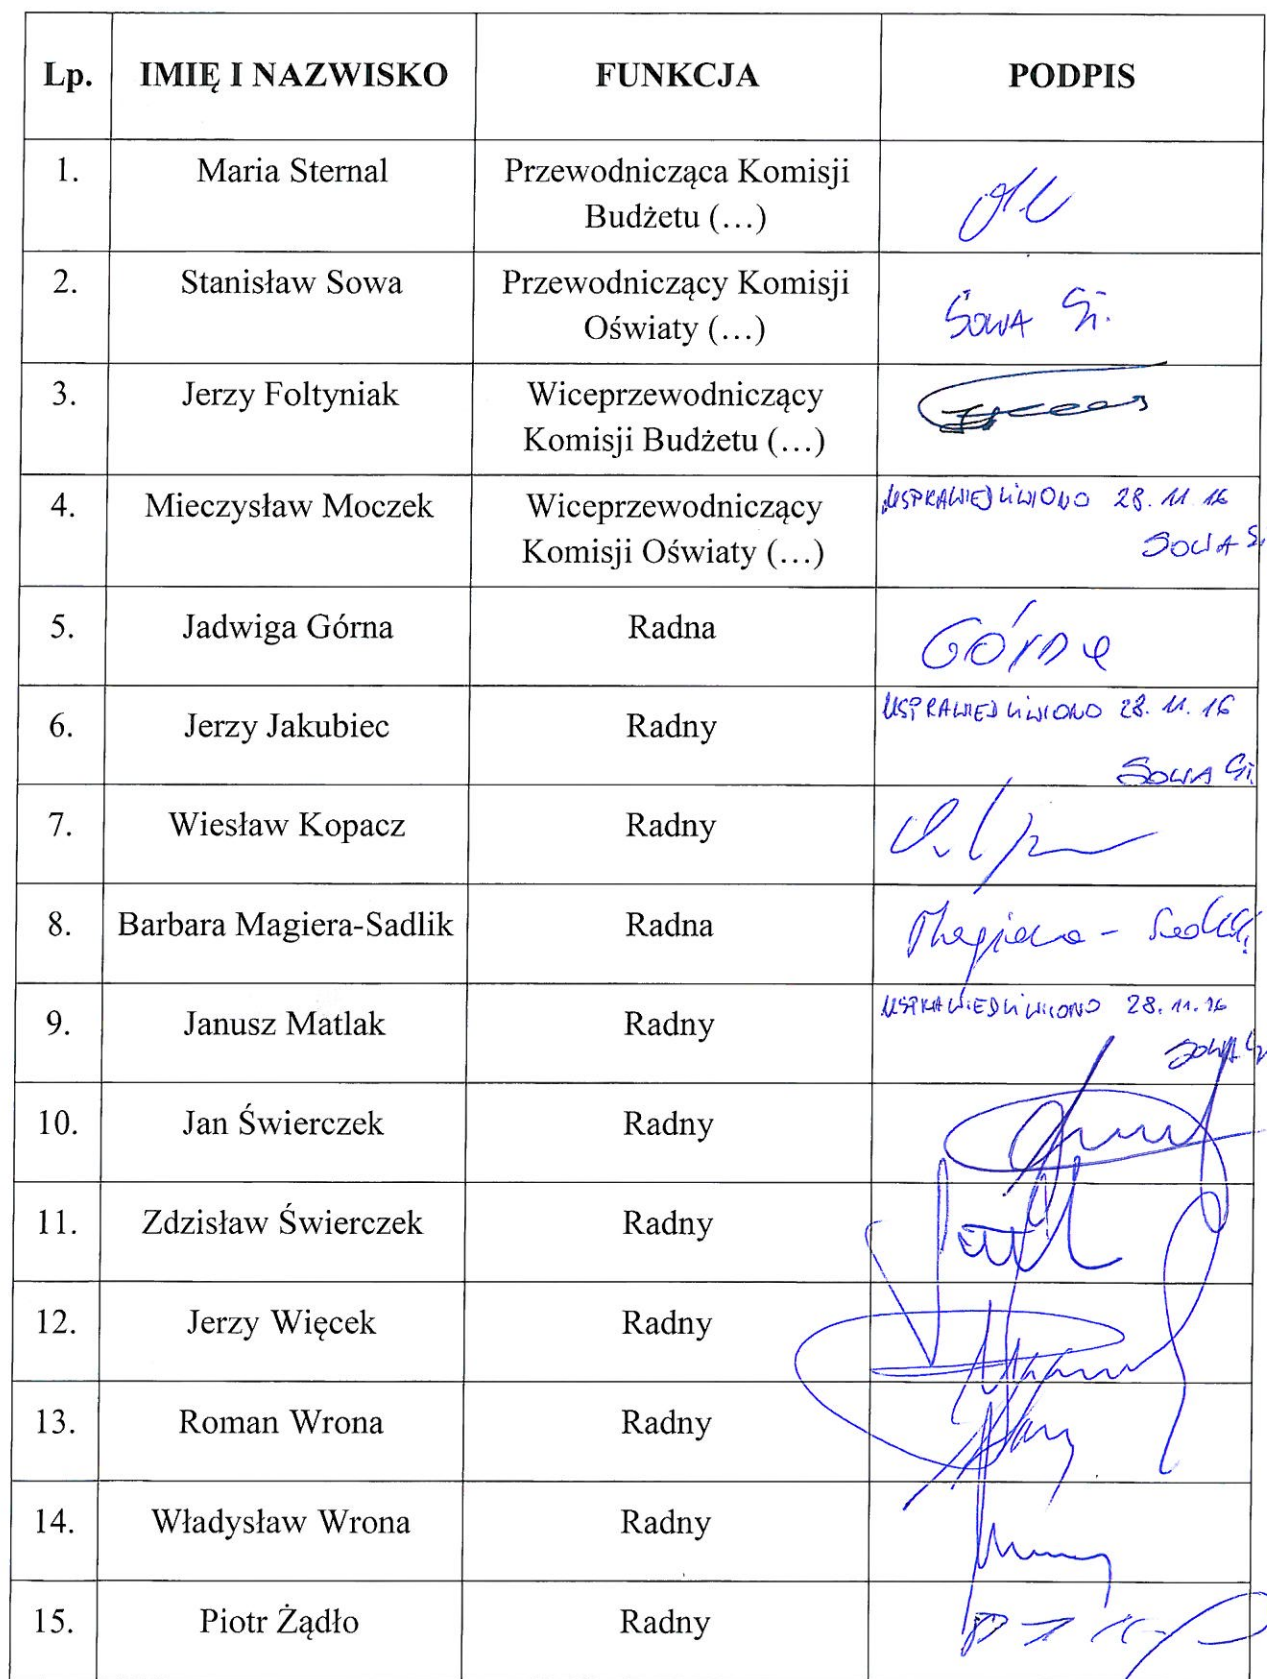 Lp. IMIĘ I NAZWISKO FUNKCJA PODPIS
1. Maria Sternal Przewodnicząca Komisji
Budżetu (…)
2. Stanisław Sowa Przewodniczący Komisji
Oświaty (…) SOWA St.
3. Jerzy Foltyniak Wiceprzewodniczący
Komisji Budżetu (…)
4. Mieczysław Moczek Wiceprzewodniczący USPRAWIEDLIWIONO 28.11.16
Komisji Oświaty (…) SOWA S
5. Jadwiga Górna Radna GÓRNA
6. Jerzy Jakubiec Radny USPRAWIEDLIWIONO 28.11.16
SOWA St.
7. Wiesław Kopacz Radny
8. Barbara Magiera-Sadlik Radna Magiera - Sadlik
9. Janusz Matlak Radny USPRAWIEDLIWIONO 28.11.16
SOWA
10. Jan Świerczek Radny
11. Zdzisław Świerczek Radny
12. Jerzy Więcek Radny
13. Roman Wrona Radny
14. Władysław Wrona Radny
15. Piotr Żądło Radny